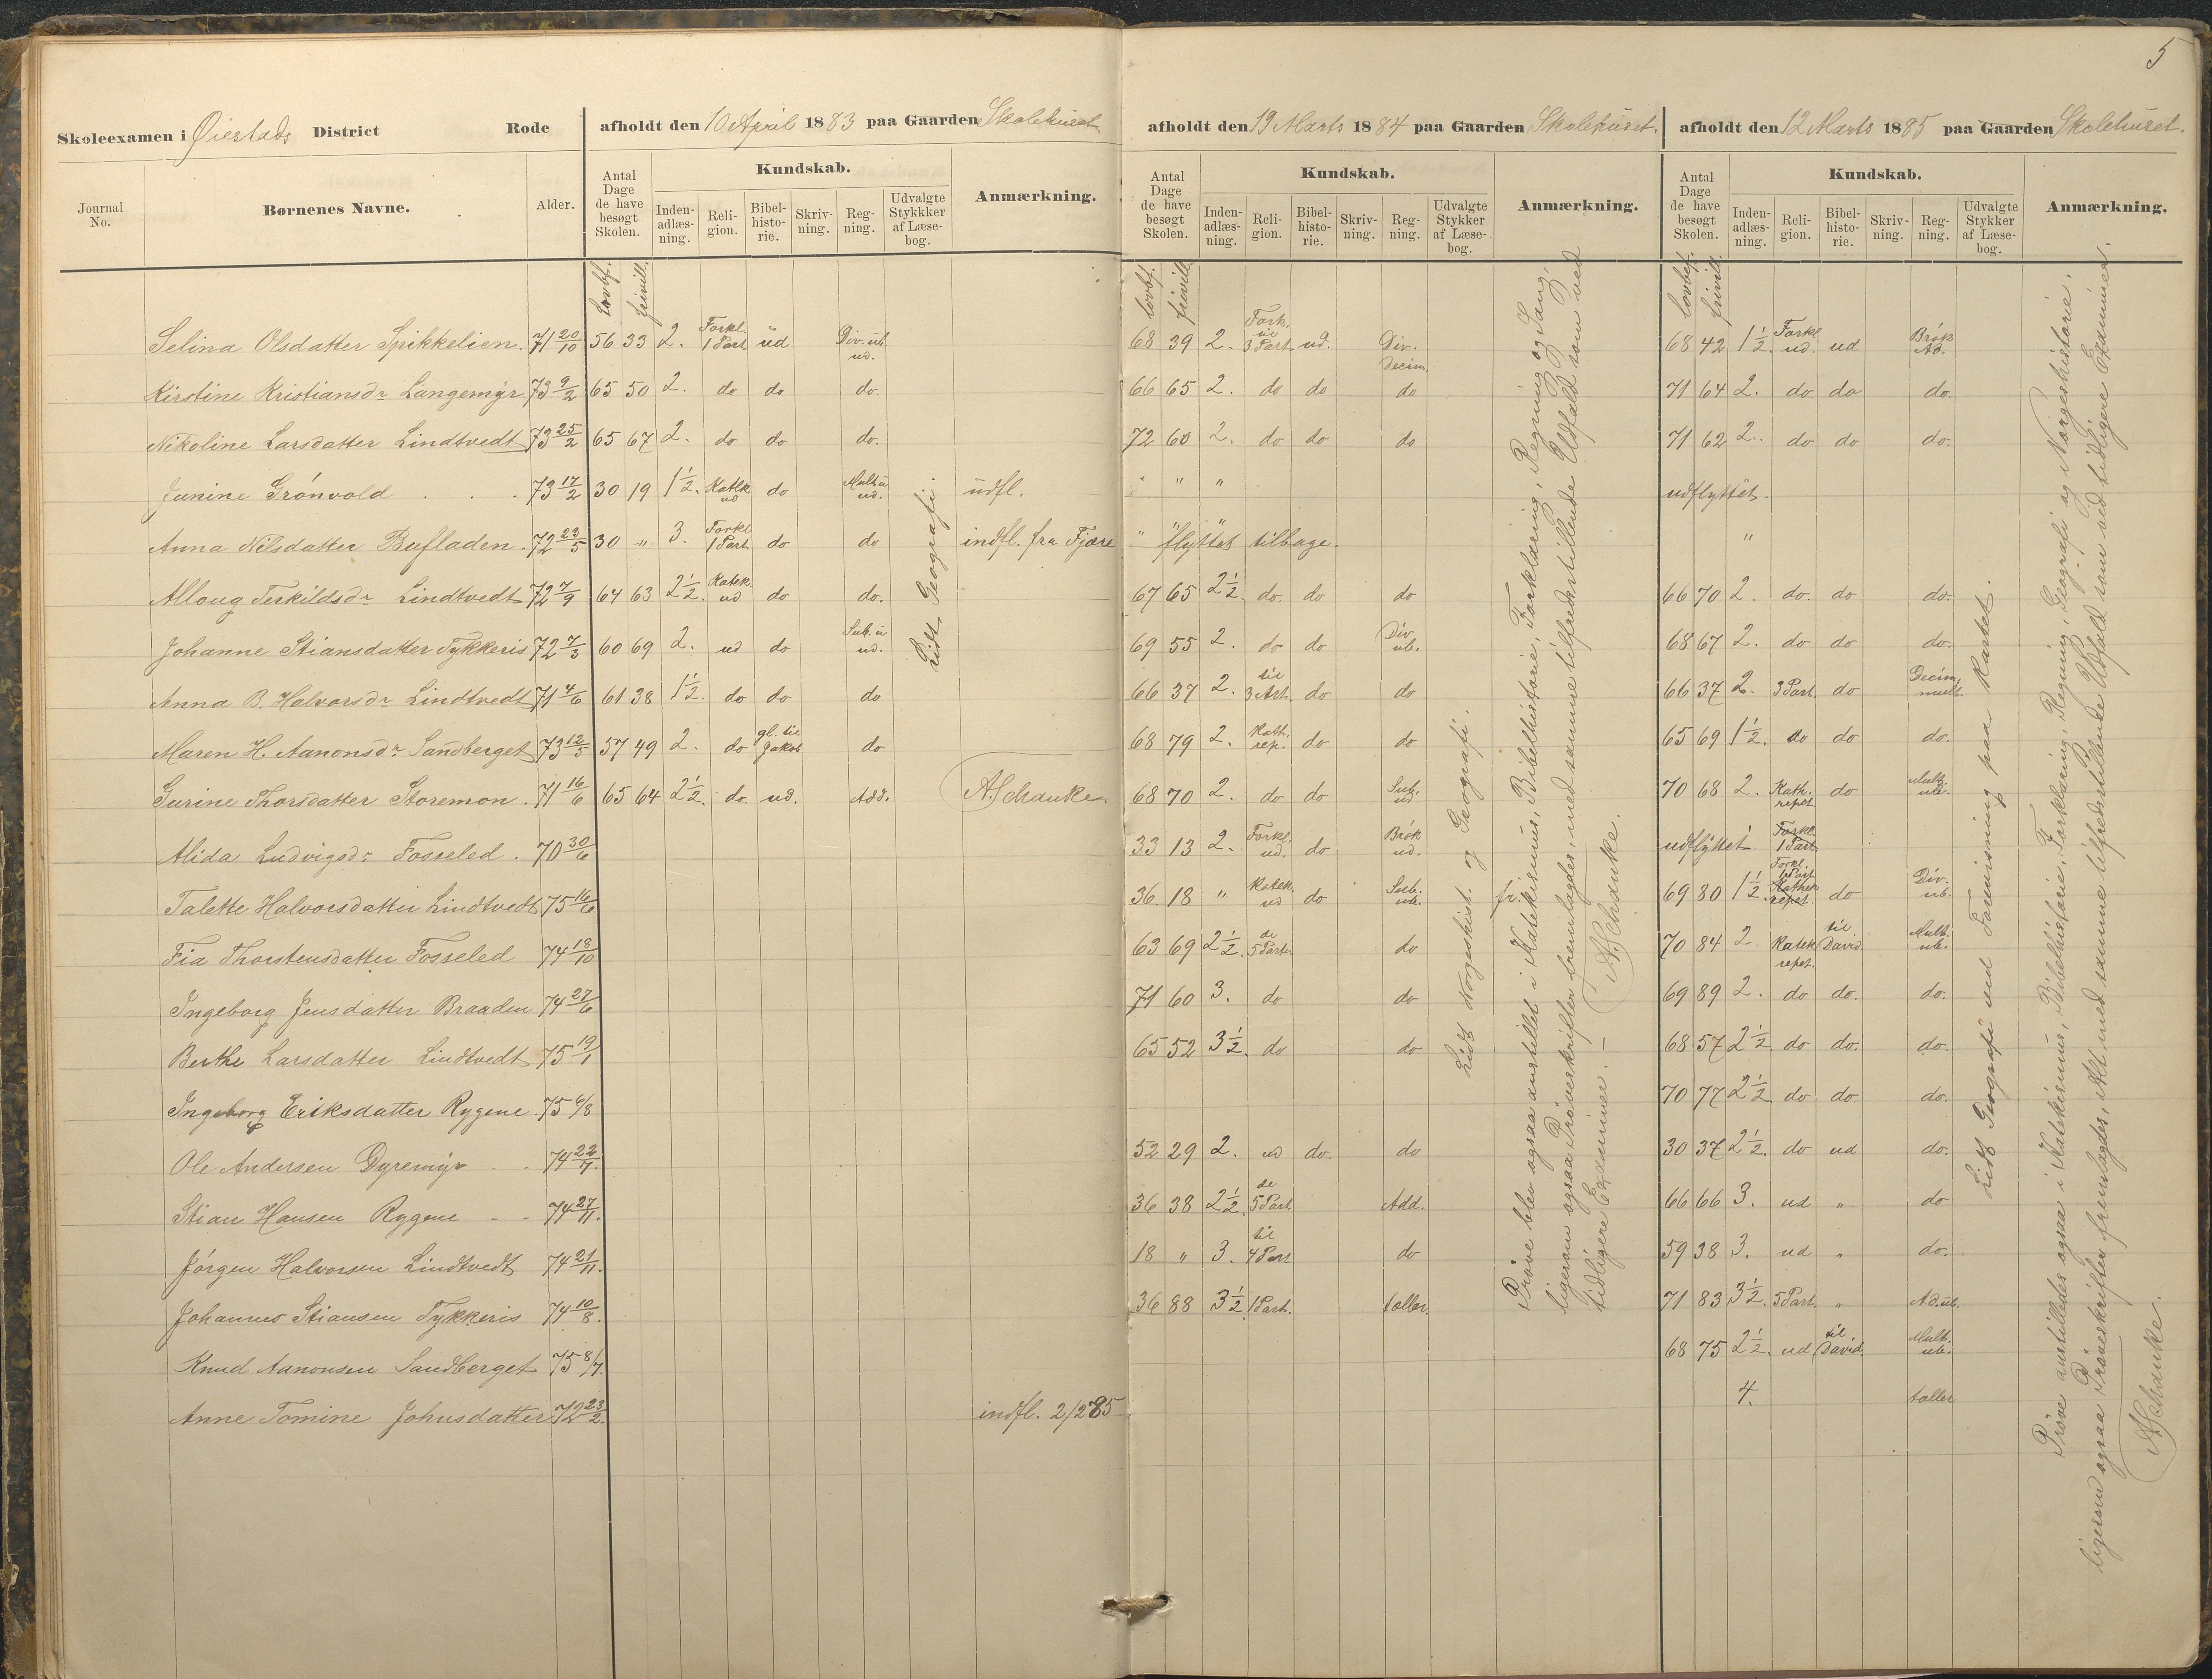 5
Skoleexamen i Øiestads District Rode afholdt den 10 April 1883 paa Gaarden Skolehuset afholdt den 19 Marts 1884 paa Gaarden Skolehuset. afholdt den 12 Marts 1885 paa Gaarden Skolehuset.
Journal No. Børnenes Navne. Alder. Antal Dage de have besøgt Skolen. Kundskab. Inden-adlæs-ning. Reli-gion. Bibel-histo-rie. Skriv-ning. Reg-ning. Udvalgte Stykkker af Læse-bog. Anmærkning. Antal Dage de have besøgt Skolen. Kundskab. Inden-adlæs-ning. Reli-gion. Bibel-histo-rie. Skriv-ning. Reg-ning. Udvalgte Stykker af Læse-bog. Anmærkning. Antal Dage de have besøgt Skolen. Kundskab. Inden-adlæs-ning. Reli-gion. Bibel-histo-rie. Skriv-ning. Reg-ning. Udvalgte Stykker af Læse-bog. Anmærkning.
lovbf. frivill. lovbf. frivill. lovbf. frivill.
Selina Olsdatter Spikkelien. 71 20/10 56 33 2. Forkl. 1 Part ud Div. ub. ud. 68 39 2. Fork. til 3 Part ud. Div. Decim. 68 42 1½. Forkl ud. ud Brøk Ad.
Kirstine Kristiansdr Langemyr 73 9/2 65 50 2. do do do. 66 65 2. do do do 71 64 2. do do do.
Nikoline Larsdatter Lindtvedt 73 25/2 65 67 2. do do do. 72 60 2. do do do 71 62 2. do do do.
Junine Grönvold . . . 73 17/2 30 19 1½. Katk ud do Mult u ud. udfl. " " " udflyttet.
Anna Nilsdatter Bufladen. 72 23/5 30 " 3. Forkl 1 Part do do indfl. fra Fjære " flyttet tilbage. "
Alloug Terkildsdr Lindtvedt 72 7/9 64 63 2½. Katek ud do do. 67 65 2½. do. do do 66 70 2. do. do do.
Johanne Stiansdatter Tykkeris 72 7/3 60 69 2. ud do Sub. u ud. 69 55 2. do do Div ub. 68 67 2. do do do.
Anna B. Halvorsdr Lindtvedt 71 4/6 61 38 1½. do do do 66 37 2. til 3 Art. do do 66 37 2. 3 Part. do Decim. mult.
Maren H. Aanonsdr Sandberget 73 12/5 57 49 2. do gl. til Jakob do 68 79 2. Kath. rep. do do 65 69 1½. do do do.
Gurine Thorsdatter Storemon. 71 16/6 65 64 2½. do. ud. Add. A Schanke. 68 70 2. do do Sub. ud 70 68 2. Kath. repet do Mult. ub.
Alida Ludvigsdr Fosseled. 70 30/6 33 13 2. Forkl. ud. do Brøk ud. udflyttet Forkl. 1 Part
Talette Halvorsdatter Lindtvedt 75 16/6 36 18 " Katek ud do Sub. ub. fr. 69 80 1½. Forkl. 1 Part Kathek repet. do Div. ub.
Fia Thorstensdatter Fosseled 74 18/10 63 69 2½. de 5 Parter do 70 84 2 Katek repet. til David Mult. ub.
Ingeborg Jensdatter Braaden 74 27/6 71 60 3. do do 69 89 2. do do. do.
Berthe Larsdatter Lindtvedt 75 19/1 65 52 3½. do do 68 57 2½. do do. do.
Ingeborg Eriksdatter Rygene. 75 6/8 70 77 2½. do do do.
Ole Andersen Dyremyr - - 74 22/7. 52 29 2. ud do. do 30 37 2½. do ud do.
Stian Hansen Rygene - - 74 27/11. 36 38 2½. de 5 Part. Add. 66 66 3. ud " do
Jörgen Halvorsen Lindtvedt 74 21/11. 18 " 3. til 4 Part do 59 38 3. ud " do.
Johannes Stiansen Tykkeris 74 10/8. 36 88 3½. 1 Part. tæller. 71 83 3½. 5 Part. " Ad. ub.
Knud Aanonsen Sandberget 75 8/7. 68 75 2½. ud til David. Mult. ub.
Anne Tomine Johnsdatter 72 23/2. indfl. 2/2 85 4. tæller
Lidt Geografi.
Lidt Norgeshist. og Geografi.
Prøve blev ogsaa anstillet i Katekismus, Bibelhistorie, Forklaring, Regning og Sang,
ligesom ogsaa Prøveskrifter fremlagdes, med samme tilfredsstillende Udfald som ved
tidligere Examiner. —
A Schanke.
Lidt Geografi ved Forevisning paa Kartet.
Prøve anstilledes ogsaa i Katekismus, Bibelhistorie, Forklaring, Regning, Geografi og Norgeshistorie.
ligesom ogsaa Prøveskrifter fremlagdes, Alt med samme tilfredsstillende Udfald som ved tidligere Examiner.
A Schanke.